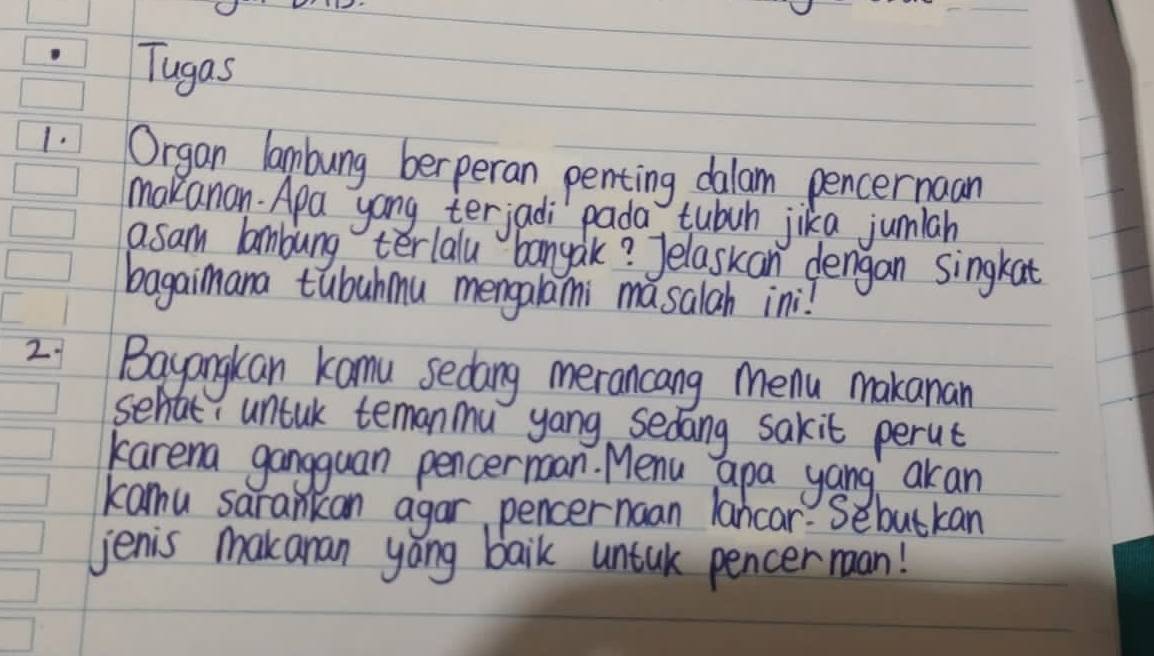 • Tugas
1. Organ lambung berperan penting dalam pencernaan
makanan. Apa yang terjadi pada tubuh jika jumlah
asam lambung terlalu banyak? Jelaskan dengan singkat
bagaimana tubuhmu mengalami masalah ini!
2. Bayangkan kamu sedang merancang menu makanan
sehat untuk temanmu yang sedang sakit perut
karena gangguan pencernaan. Menu apa yang akan
kamu sarankan agar pencernaan lancar. Sebutkan
jenis makanan yang baik untuk pencernaan!